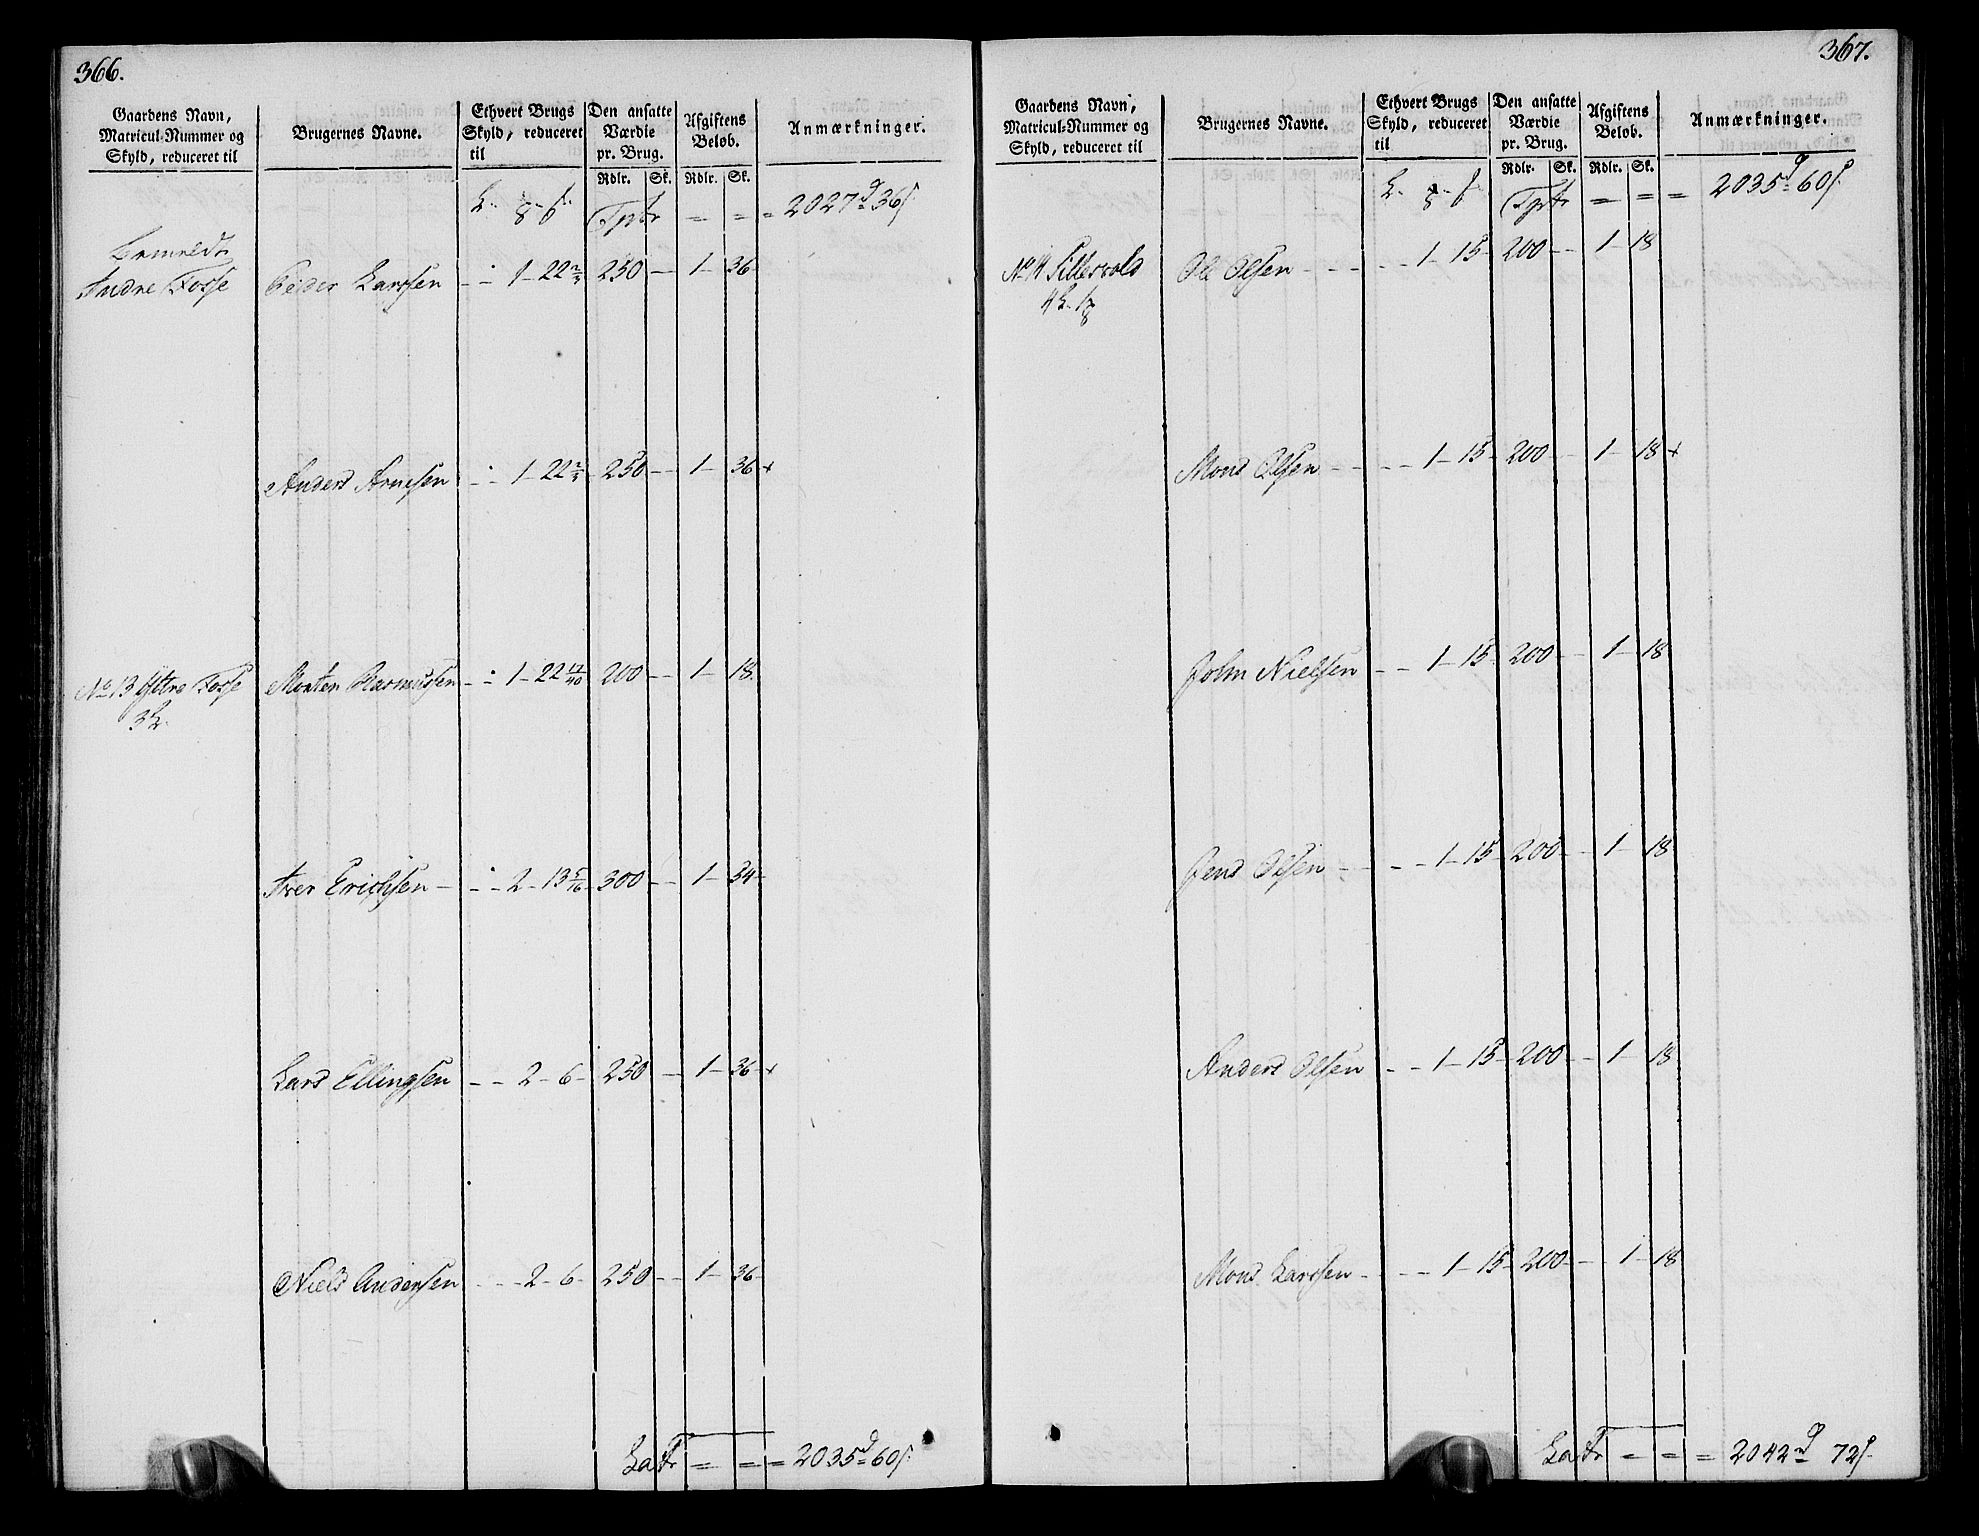 366.
Gaardens Navn,
Matricul-Nummer og
Skyld, reduceret til
Brugernes Navne.
Ethvert Brugs
Skyld, reduceret
til
Den ansatte
Værdie
pr. Brug.
Rdlr. Sk.
Afgiftens
Beløb.
Rdlr. Sk.
Anmærkninger.
Tptr = = = 2027 36
Indre Fosse Peder Larssen 1 - 22 2/3 250 - 1 - 36
Anders Arnesen 1 - 22 2/3 250 - 1 - 36 +
No 13 Ÿttre Fosse Morten Rasmussen 1 - 22 17/40 200 - 1 - 18
3 L
Iver Erichsen 2 - 13 5/16 300 - 1 - 54
Lars Ellingsen 2 - 6 - 250 - 1 - 36 +
Niels Andersen 2 - 6 - 250 - 1 - 36
Latr = = = 2035 60
367.
Gaardens Navn,
Matricul-Nummer og
Skyld, reduceret til
Brugernes Navne.
Ethvert Brugs
Skyld, reduceret
til
Den ansatte
Værdie
pr. Brug.
Rdlr. Sk.
Afgiftens
Beløb.
Rdlr. Sk.
Anmærkninger.
Tptr = = = 2035 60
No 14 Ole Olsen 1 - 15 - 200 - 1 - 18
Mons Olsen 1 - 15 - 200 - 1 - 18 +
John Nielsen 1 - 15 - 200 - 1 - 18
Jens Olsen 1 - 15 - 200 - 1 - 18
Anders Olsen 1 - 15 - 200 - 1 - 18
Mons Larssen 1 - 15 - 200 - 1 - 18
Latr = = = 2042 72